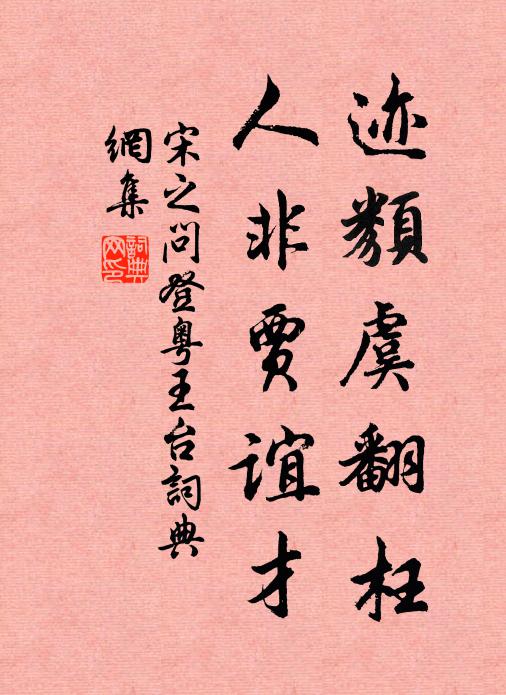 迹類虞翻枉
人非賈誼才
宋之问登粵王台詞典
網集
詞典网印